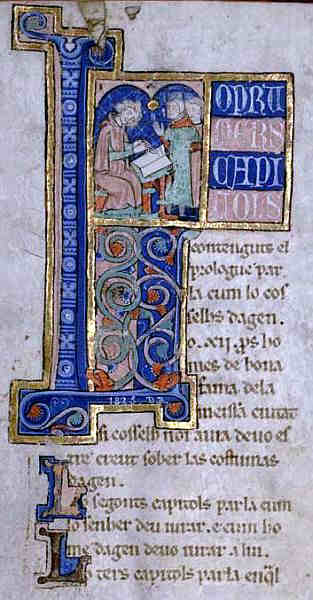 L OPRU
MERS
CAPI
TOLS
contenguts el
prologue par
la cum lo cos
selhs dagen.
o. xii. ps ho
mes de bona
fama dela
meissa ciutat
si cosselh noi auia deuo es
tre creut sober las costumas
dagen.
Lo segonts capitols parla cum
lo senher deu iurar. e cum ho
me dagen deuo iurar a lui.
Lo ters capitols parla